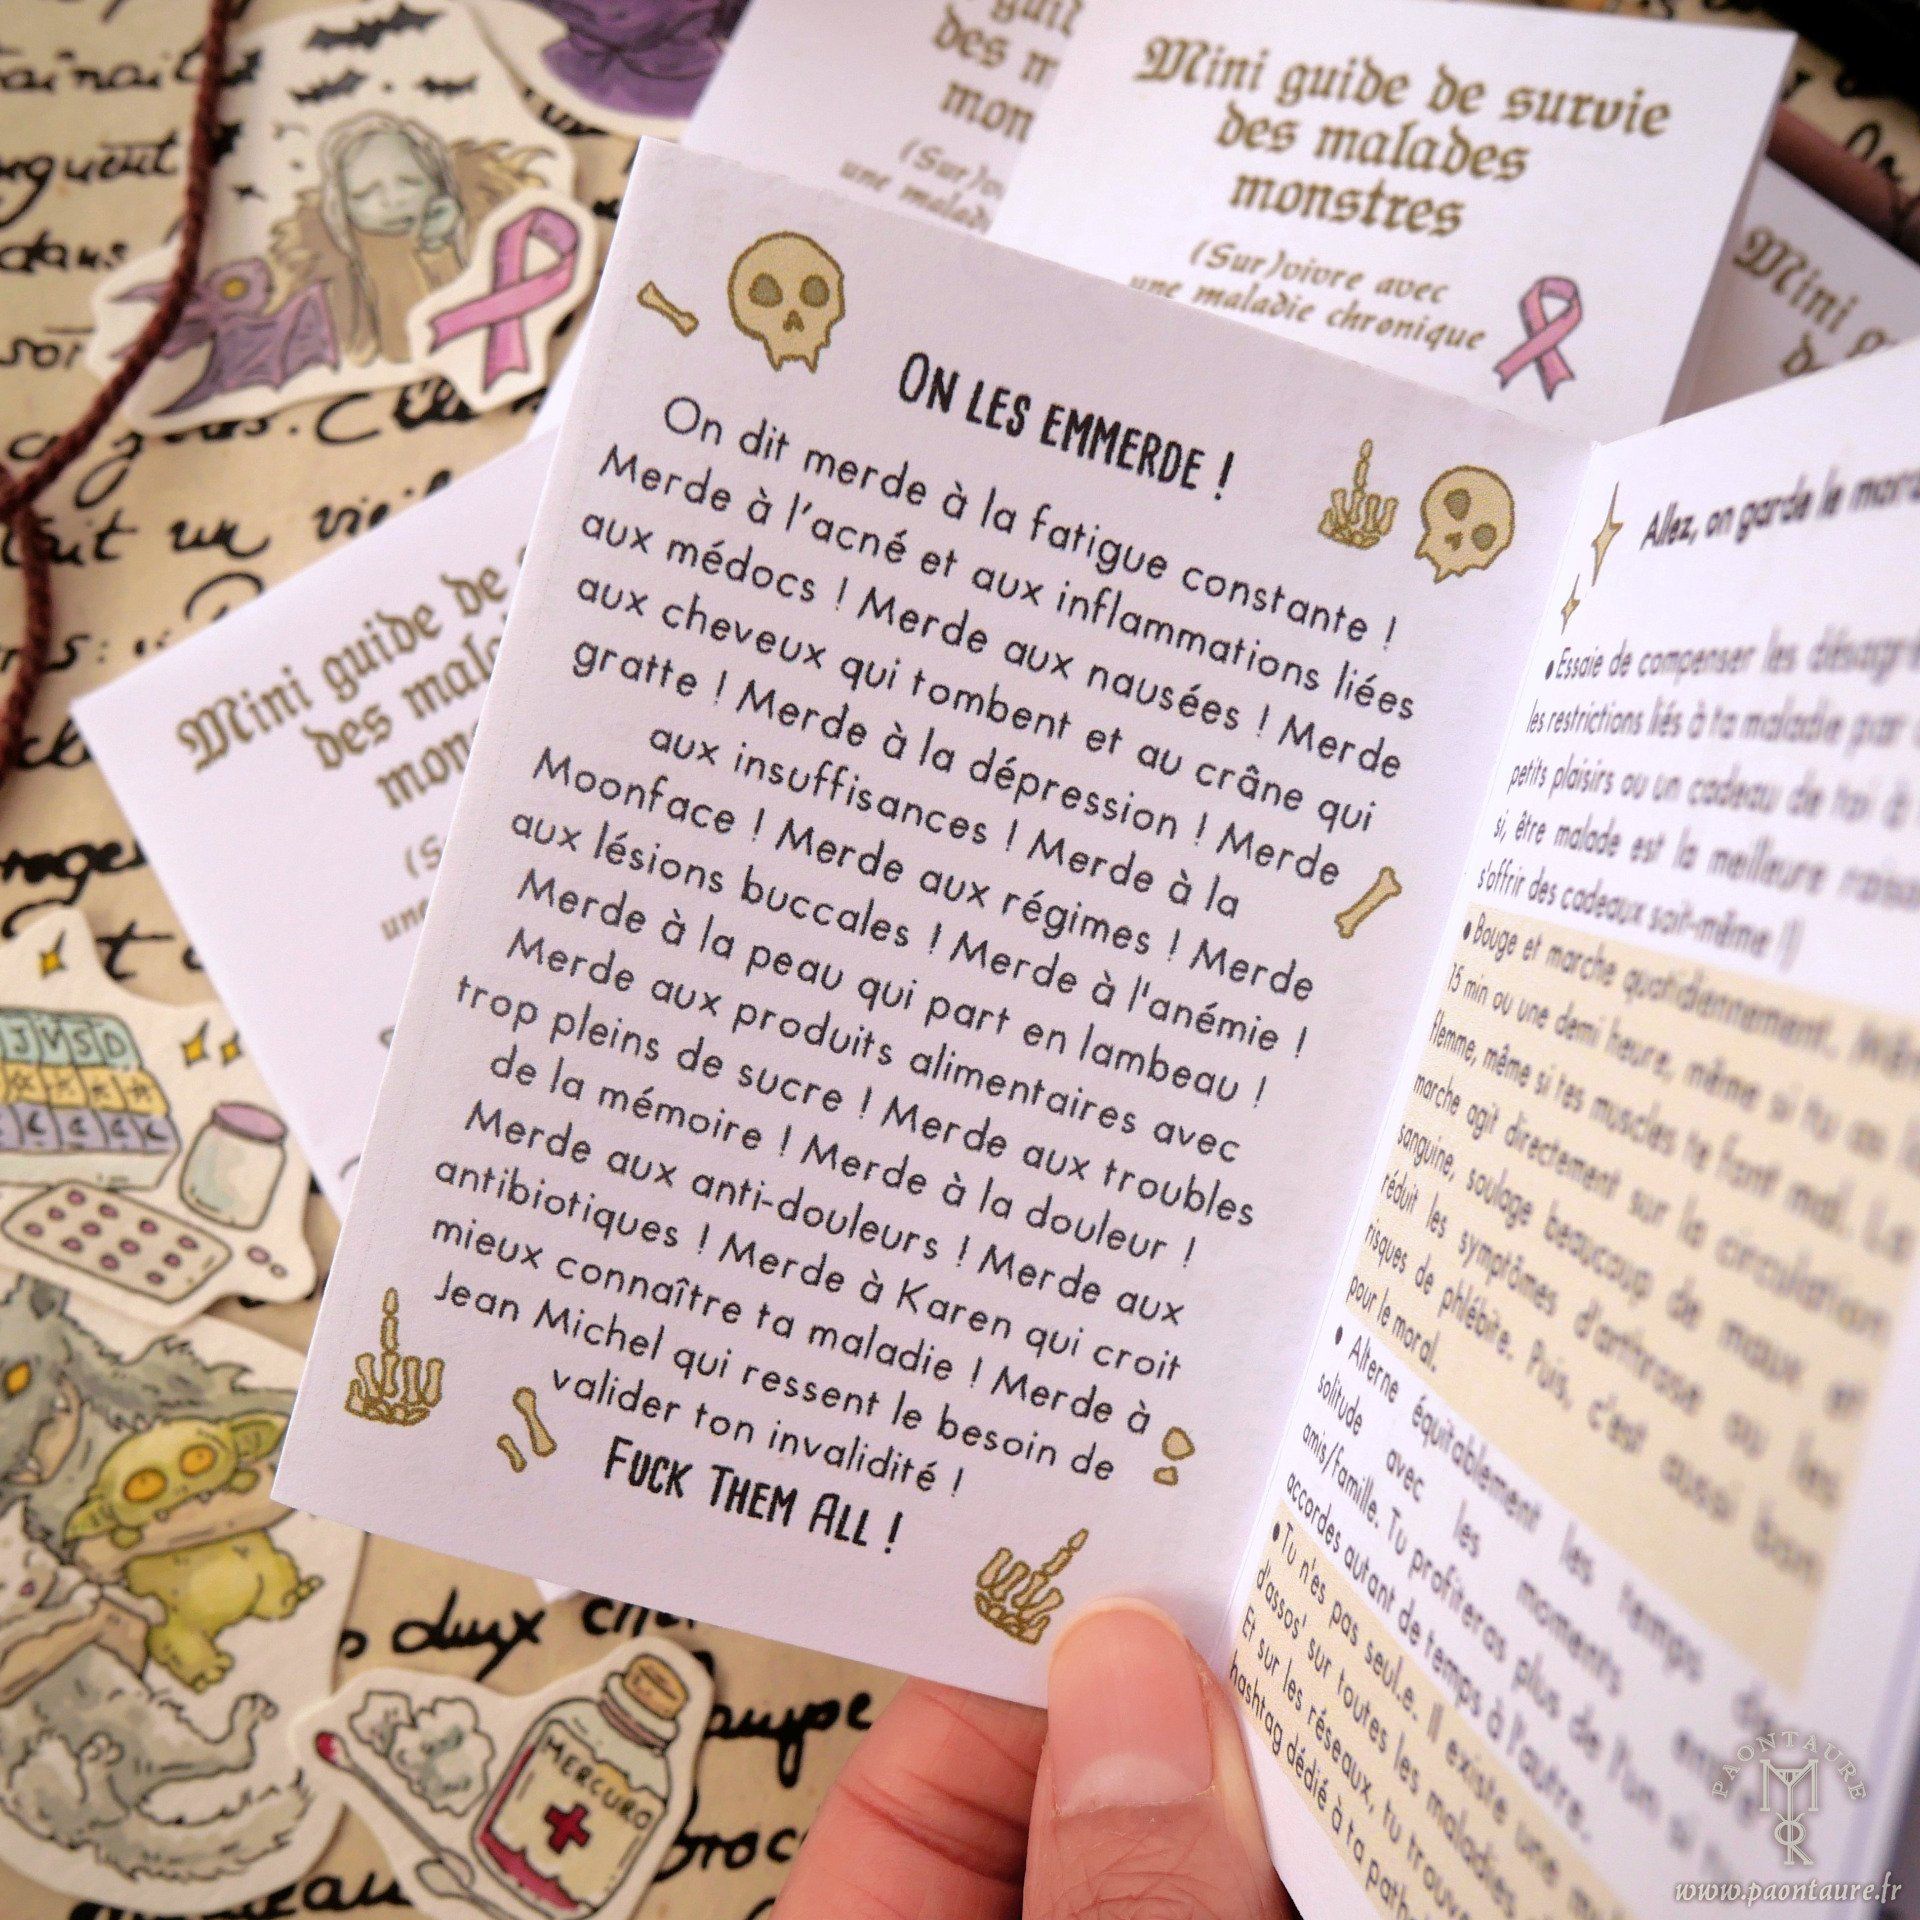 Mini guide de survie
des malades
monstres
(Sur)vivre avec
une maladie chronique
des m
mon
(Sur)vi
une maladi
Mini
Mini guide de
des mal
mon
ON LES EMMERDE !
On dit merde à la fatigue constante !
Merde à l'acné et aux inflammations liées
aux médocs ! Merde aux nausées ! Merde
aux cheveux qui tombent et au crâne qui
gratte ! Merde à la dépression ! Merde
aux insuffisances ! Merde à la
Moonface ! Merde aux régimes ! Merde
aux lésions buccales ! Merde à l'anémie !
Merde à la peau qui part en lambeau !
Merde aux produits alimentaires avec
trop pleins de sucre ! Merde aux troubles
de la mémoire ! Merde à la douleur !
Merde aux anti-douleurs ! Merde aux
antibiotiques ! Merde à Karen qui croit
mieux connaître ta maladie ! Merde à
Jean Michel qui ressent le besoin de
valider ton invalidité !
FUCK THEM ALL !
Allez, on garde le mora
•Essaie de compenser les désagré
les restrictions liés à ta maladie par
petits plaisirs ou un cadeau de toi à
si, être malade est la meilleure raison
s'offrir des cadeaux soit-même !)
•Bouge et marche quotidiennement. Mêm
15 min ou une demi heure, même si tu as l
flemme, même si tes muscles te font mal. La
marche agit directement sur la circulation
sanguine, soulage beaucoup de maux et
réduit les symptômes d'arthrose ou les
risques de phlébite. Puis, c'est aussi bon
pour le moral.
• Alterne équitablement les temps de
solitude avec les moments entre
amis/famille. Tu profiteras plus de l'un si tu
accordes autant de temps à l'autre.
•Tu n'es pas seul.e. Il existe une
d'assos' sur toutes les maladies
Et sur les réseaux, tu trouve
hashtag dédié à ta path
J V S D
MERCURO
dans
soi
un
PAONTAURE
www.paontaure.fr